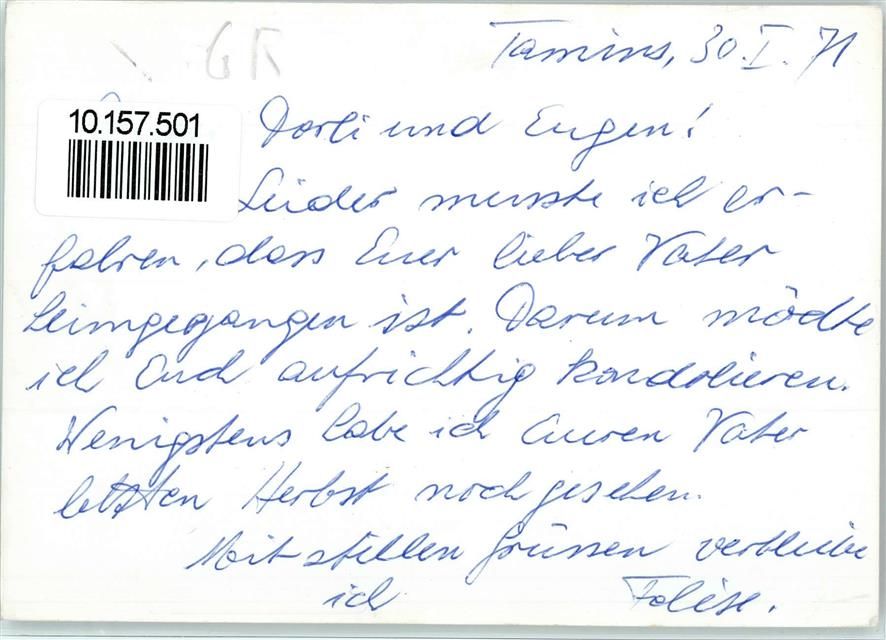 Tamins, 30. I. 71
GR
10.157.501
Dorli und Eugen!
Leider musste ich er-
fahren, dass Euer lieber Vater
heimgegangen ist. Darum möchte
ich Euch aufrichtig kondolieren.
Wenigstens habe ich Euren Vater
letzten Herbst noch gesehen.
Mit stillen Grüssen verbleibe
ich